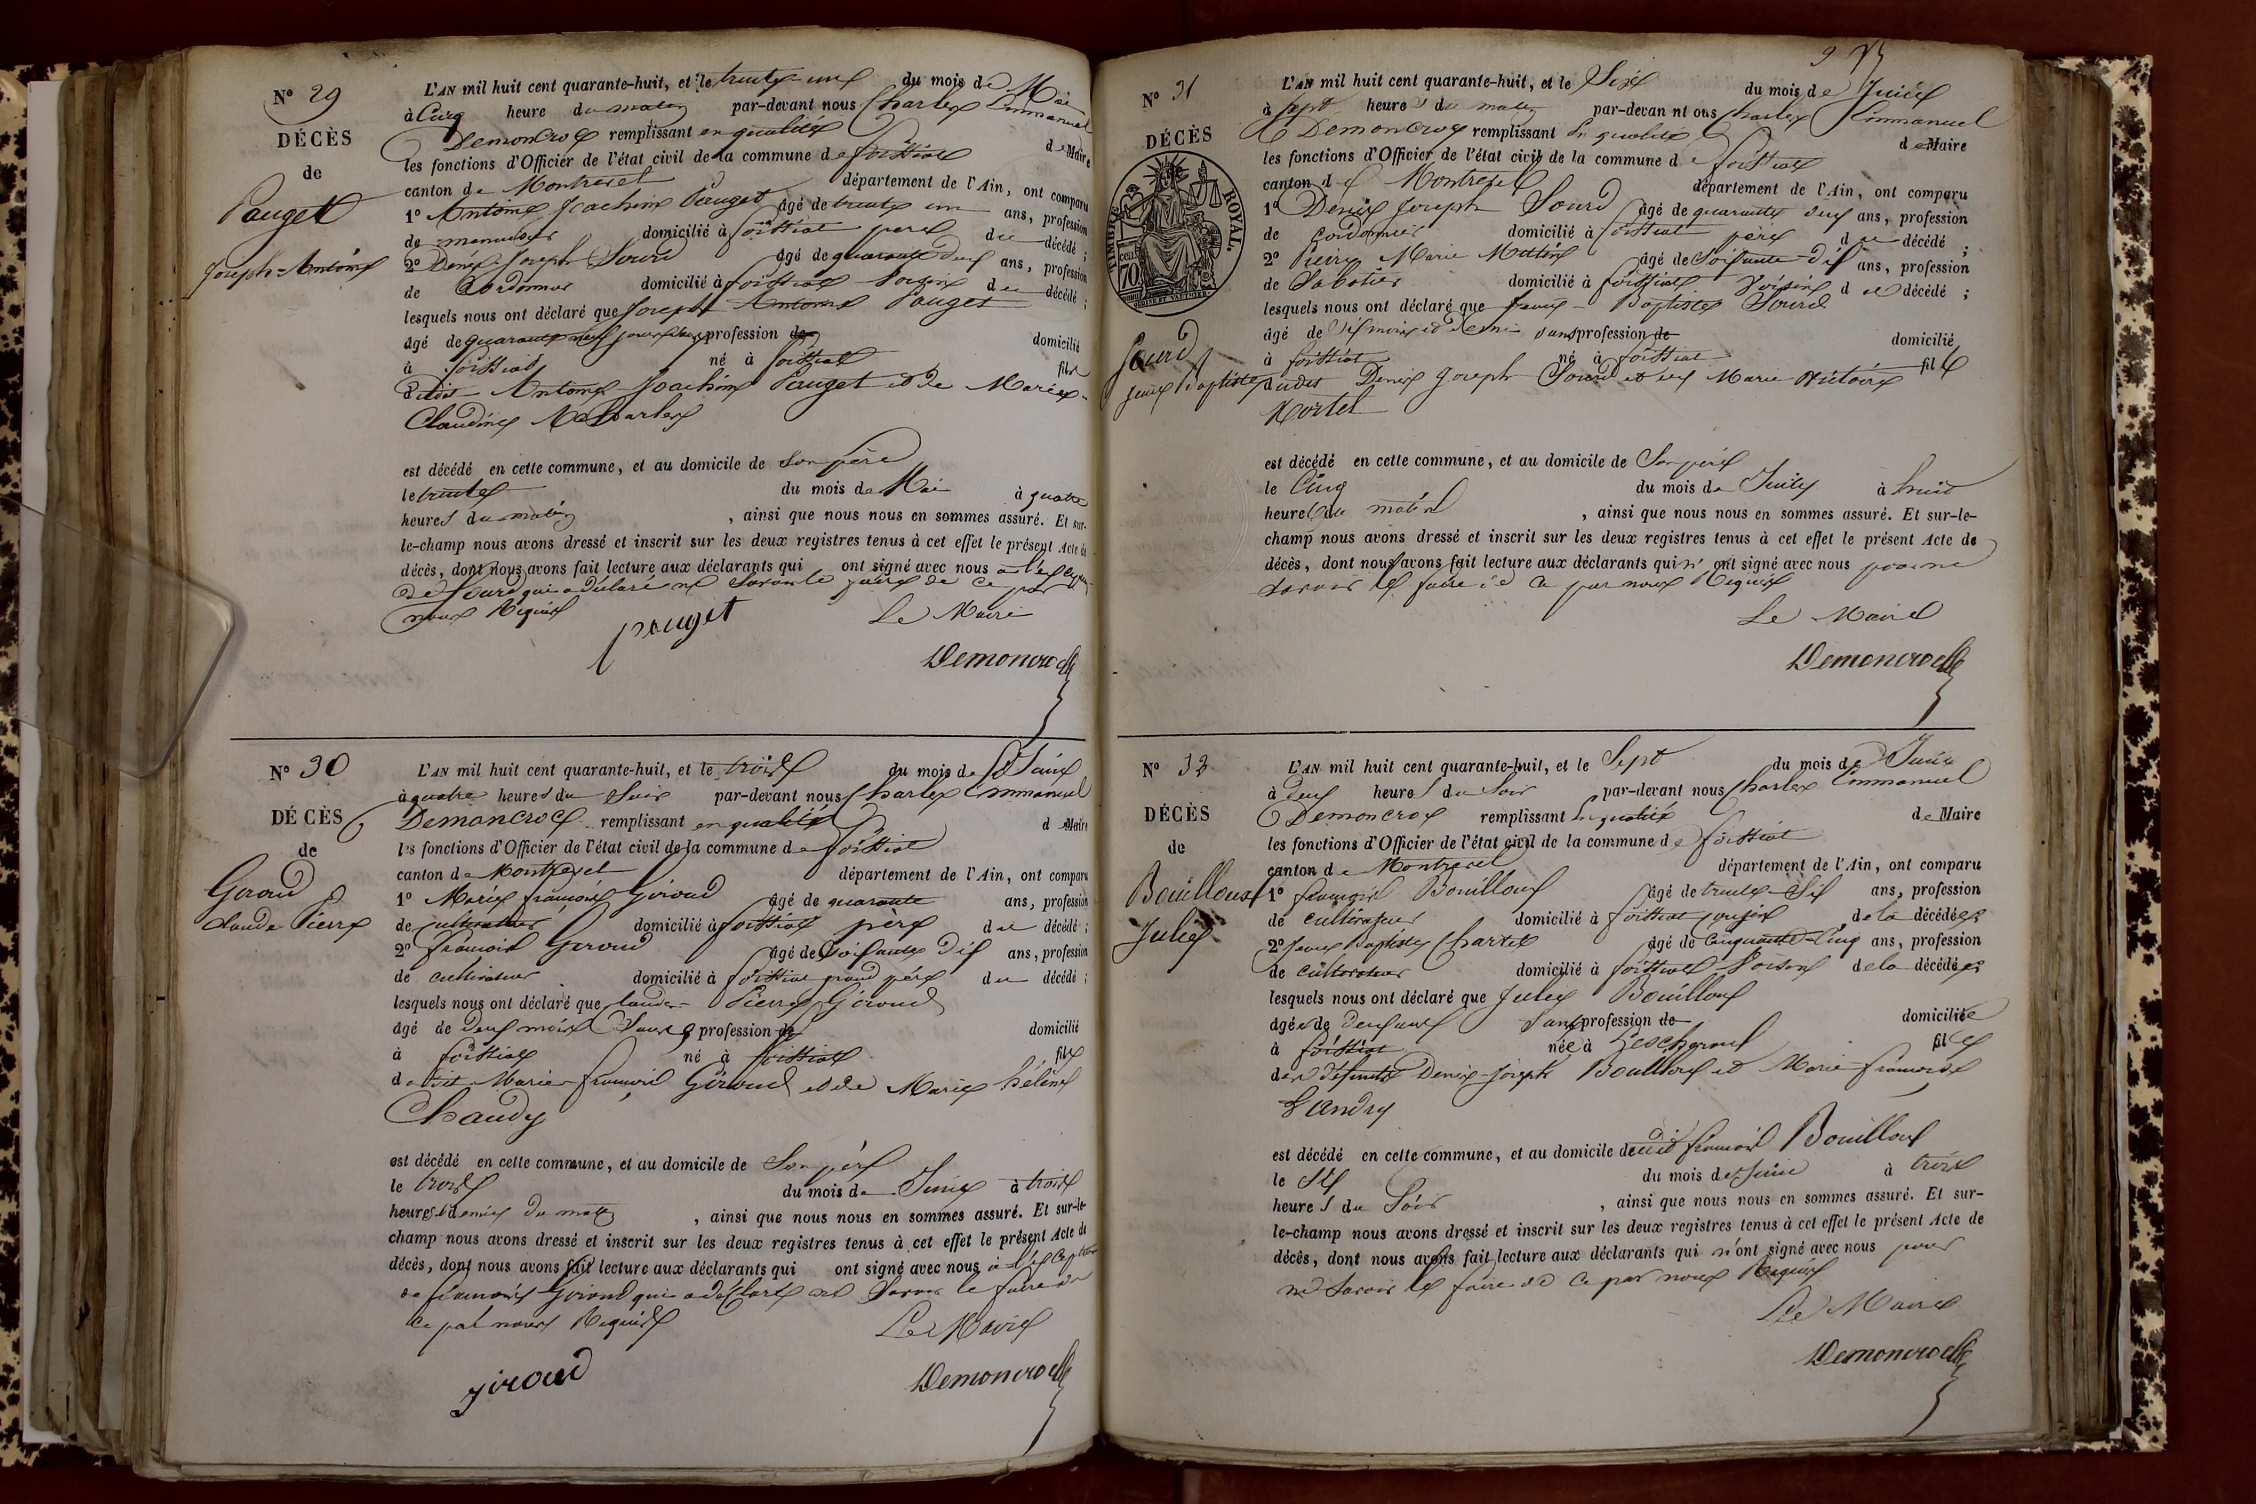 N° 29
DÉCÈS
de
Pauget
Joseph-Antoine
L'AN mil huit cent quarante-huit, et le trente-une du mois de Mai
à Cinq heure du matin par-devant nous Charles Emmanuel
Demoncroc remplissant en qualité de Maire
les fonctions d'Officier de l'état civil de la commune de foissiat
canton de Montrevel département de l'Ain, ont comparu
1° Antoine Joachim Pauget âgé de trente un ans, profession
de menuisier domicilié à foissiat père du décédé ;
2° Denis Joseph Sourd âgé de quarante deux ans, profession
de Cordonnier domicilié à foissiat voisin du décédé ;
lesquels nous ont déclaré que Joseph Antoine Pauget
âgé de quarante neuf jours sans profession de domicilié
à foissiat né à foissiat fils
dudit Antoine Joachim Pauget et de Marie-
Claudine
est décédé en cette commune, et au domicile de Son père
le trente du mois de Mai à quatre
heures du matin , ainsi que nous nous en sommes assuré. Et sur-
le-champ nous avons dressé et inscrit sur les deux registres tenus à cet effet le présent Acte de
décès, dont nous avons fait lecture aux déclarants qui ont signé avec nous à l'exception
de Sourd qui a déclaré ne savoir le faire de ce par
nous Requis
pauget
Le Maire
Demoncroc
N° 30
DÉCÈS
de
Giroud
Claude Pierre
L'AN mil huit cent quarante-huit, et le trois du mois de Juin
à quatre heures du Soir par-devant nous Charles Emmanuel
Demoncroc remplissant en qualité de Maire
les fonctions d'Officier de l'état civil de la commune de foissiat
canton de Montrevel département de l'Ain, ont comparu
1° Marie françois Giroud âgé de quarante ans, profession
de cultivateur domicilié à foissiat père du décédé ;
2° françois Giroud âgé de soixante dix ans, profession
de cultivateur domicilié à foissiat grand père du décédé ;
lesquels nous ont déclaré que Claude-Pierre Giroud
âgé de deux mois Sans profession de domicilié
à foissiat né à foissiat fils
dudit Marie-françois Giroud et de Marie hélène
Chaudy
est décédé en cette commune, et au domicile de Son père
le trois du mois de Juin à trois
heures et demie du matin , ainsi que nous nous en sommes assuré. Et sur-le-
champ nous avons dressé et inscrit sur les deux registres tenus à cet effet le présent Acte de
décès, dont nous avons fait lecture aux déclarants qui ont signé avec nous à l'exception
de françois Giroud qui a déclaré ne Savoir le faire de
ce par nous Requis
Le Maire
giroud
Demoncroc
N° 31
DÉCÈS
TIMBRE ROYAL.
70
Sourd
Jean Baptiste
L'AN mil huit cent quarante-huit, et le Six du mois de Juin
à Sept heures du matin par-devan nt ous Charles Emmanuel
Demoncroc remplissant En qualité de Maire
les fonctions d'Officier de l'état civil de la commune de foissiat
canton de Montrevel département de l'Ain, ont comparu
1° Denis Joseph Sourd âgé de quarante deux ans, profession
de Cordonnier domicilié à foissiat père du décédé ;
2° Pierre Marie âgé de Soixante-dix ans, profession
de Sabotier domicilié à foissiat Voisin du décédé ;
lesquels nous ont déclaré que Jean-Baptiste Sourd
âgé de Six mois et demi sans profession de domicilié
à foissiat né à foissiat fils
dudit Denis Joseph Sourd et de Marie Victoire
Mortel
est décédé en cette commune, et au domicile de Son père
le Cinq du mois de Juin à huit
heures du matin , ainsi que nous nous en sommes assuré. Et sur-le-
champ nous avons dressé et inscrit sur les deux registres tenus à cet effet le présent Acte de
décès, dont nous avons fait lecture aux déclarants qui n'ont signé avec nous pour ne
savoir le faire de ce par nous Requis
Le Maire
Demoncroc
N° 32
DÉCÈS
de
Bouilloux
Julie
L'AN mil huit cent quarante-huit, et le Sept du mois de Juin
à deux heures du Soir par-devant nous Charles Emmanuel
Demoncroc remplissant En qualité de Maire
les fonctions d'Officier de l'état civil de la commune de foissiat
canton de Montrevel département de l'Ain, ont comparu
1° françois Bouilloux âgé de trente-Six ans, profession
de cultivateur domicilié à foissiat de la décédée ;
2° Jean Baptiste Chartel âgé de Cinquante-Cinq ans, profession
de cultivateur domicilié à foissiat Voisin de la décédée ;
lesquels nous ont déclaré que Julie Bouilloux
âgée de deux ans Sans profession de domiciliée
à foissiat née à Lescheroux fille
des défunts Denis-Joseph Bouilloux et Marie-françoise
Landry
est décédé en cette commune, et au domicile dudit françois Bouilloux
le Six du mois de Juin à trois
heures du Soir , ainsi que nous nous en sommes assuré. Et sur-
le-champ nous avons dressé et inscrit sur les deux registres tenus à cet effet le présent Acte de
décès, dont nous avons fait lecture aux déclarants qui n'ont signé avec nous pour
ne Savoir le faire de ce par nous Requis
Le Maire
Demoncroc